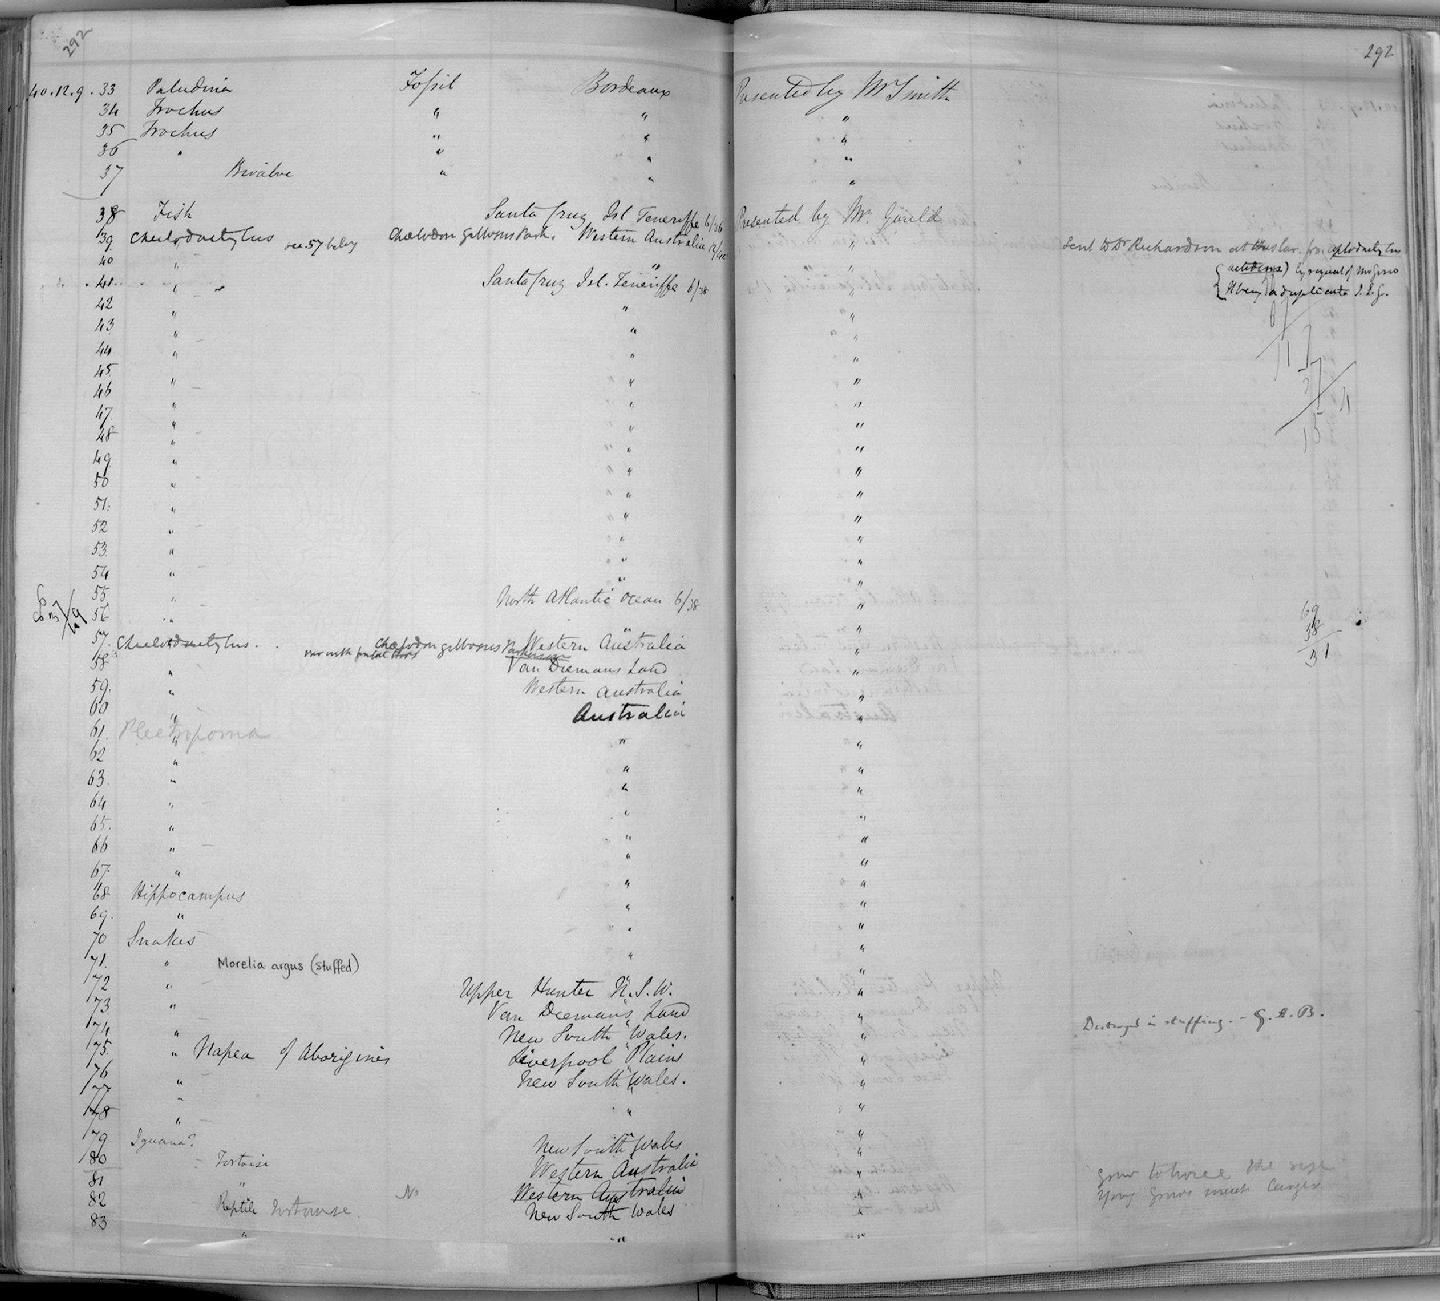 292
40.12.9.33 Paludina Fossil Bordeaux
34 Trochus " "
35 Trochus " "
36 " " "
37 Bivalve " "
38 Fish Santa Cruz Isl. Teneriffe 6/38
39 Cheilodactylus see 57 below Chaetodon gibbosus Park. Western Australia
40 " "
41 " " Santa Cruz Isl. Teneriffe 6/38
42 " "
43 " "
44 "
45 " "
46 "
47 " "
48 " "
49 " "
50 " "
51 " "
52 " "
53 " "
54 " "
55 " North Atlantic Ocean 6/38
56 "
57 Cheilodactylus. Chaetodon gibbosus Western Australia
58 " Van Diemans Land
59 " Western Australia
60 " Australia
61 Plectropoma "
62 " "
63 " "
64 " "
65 " "
66 " "
67 " "
68 Hippocampus "
69 " "
70 Snakes "
71 " Morelia argus (stuffed)
72 " Upper Hunter N.S.W.
73 " Van Diemans Land
74 " New South Wales.
75 " Napea of Aborigines Liverpool Plains
76 " New South Wales.
77 " "
78 "
79 Iguana? New South Wales
80 Tortoise Western Australia
81 " Western Australia
82 Reptile Tortoise No New South Wales
83 " "
292
Presented by Mr Smith
"
"
"
"
Presented by Mr Gould
" Sent to Dr Richardson at Haslar
by request of
being a duplicate J.E.G.
69
38
31
Destroyed in stuffing. - G.A.B.
Grow to three the size
Young Grows much larger